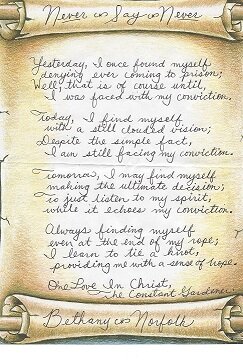 Never ∞ Say ∞ Never
Yesterday, I once found myself
denying ever coming to prison;
Well, that is of course until,
I was faced with my conviction.
Today, I find myself
with a still clouded vision;
Despite the simple fact,
I am still facing my conviction.
Tomorrow, I may find myself
making the ultimate decision;
To just listen to my spirit,
while it echoes my conviction.
Always finding myself
even at the end of my rope;
I learn to tie a knot,
providing me with a sense of hope.
One Love In Christ,
The Constant Gardener
Bethany ∞ Norfolk